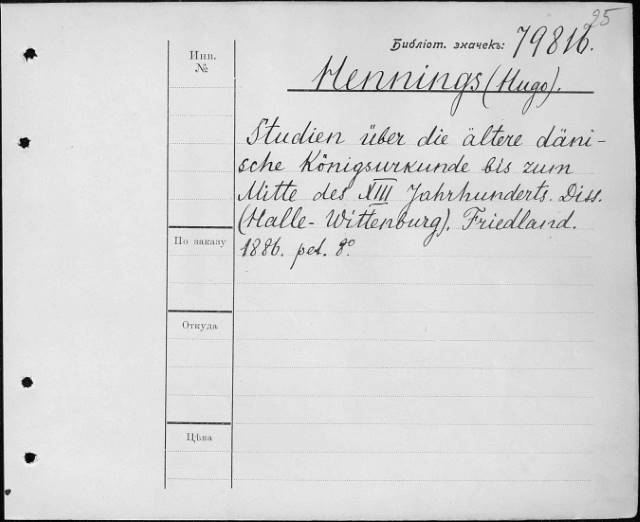 25
Библіот. значекъ: 79816.
Инв.
№
Hennings (Hugo).
Studien über die ältere däni-
sche Königsurkunde bis zum
Mitte des XIII Jahrhunderts. Diss.
(Halle-Wittenburg). Friedland.
1886. pet. 8°
По заказу
Откуда
Цѣна